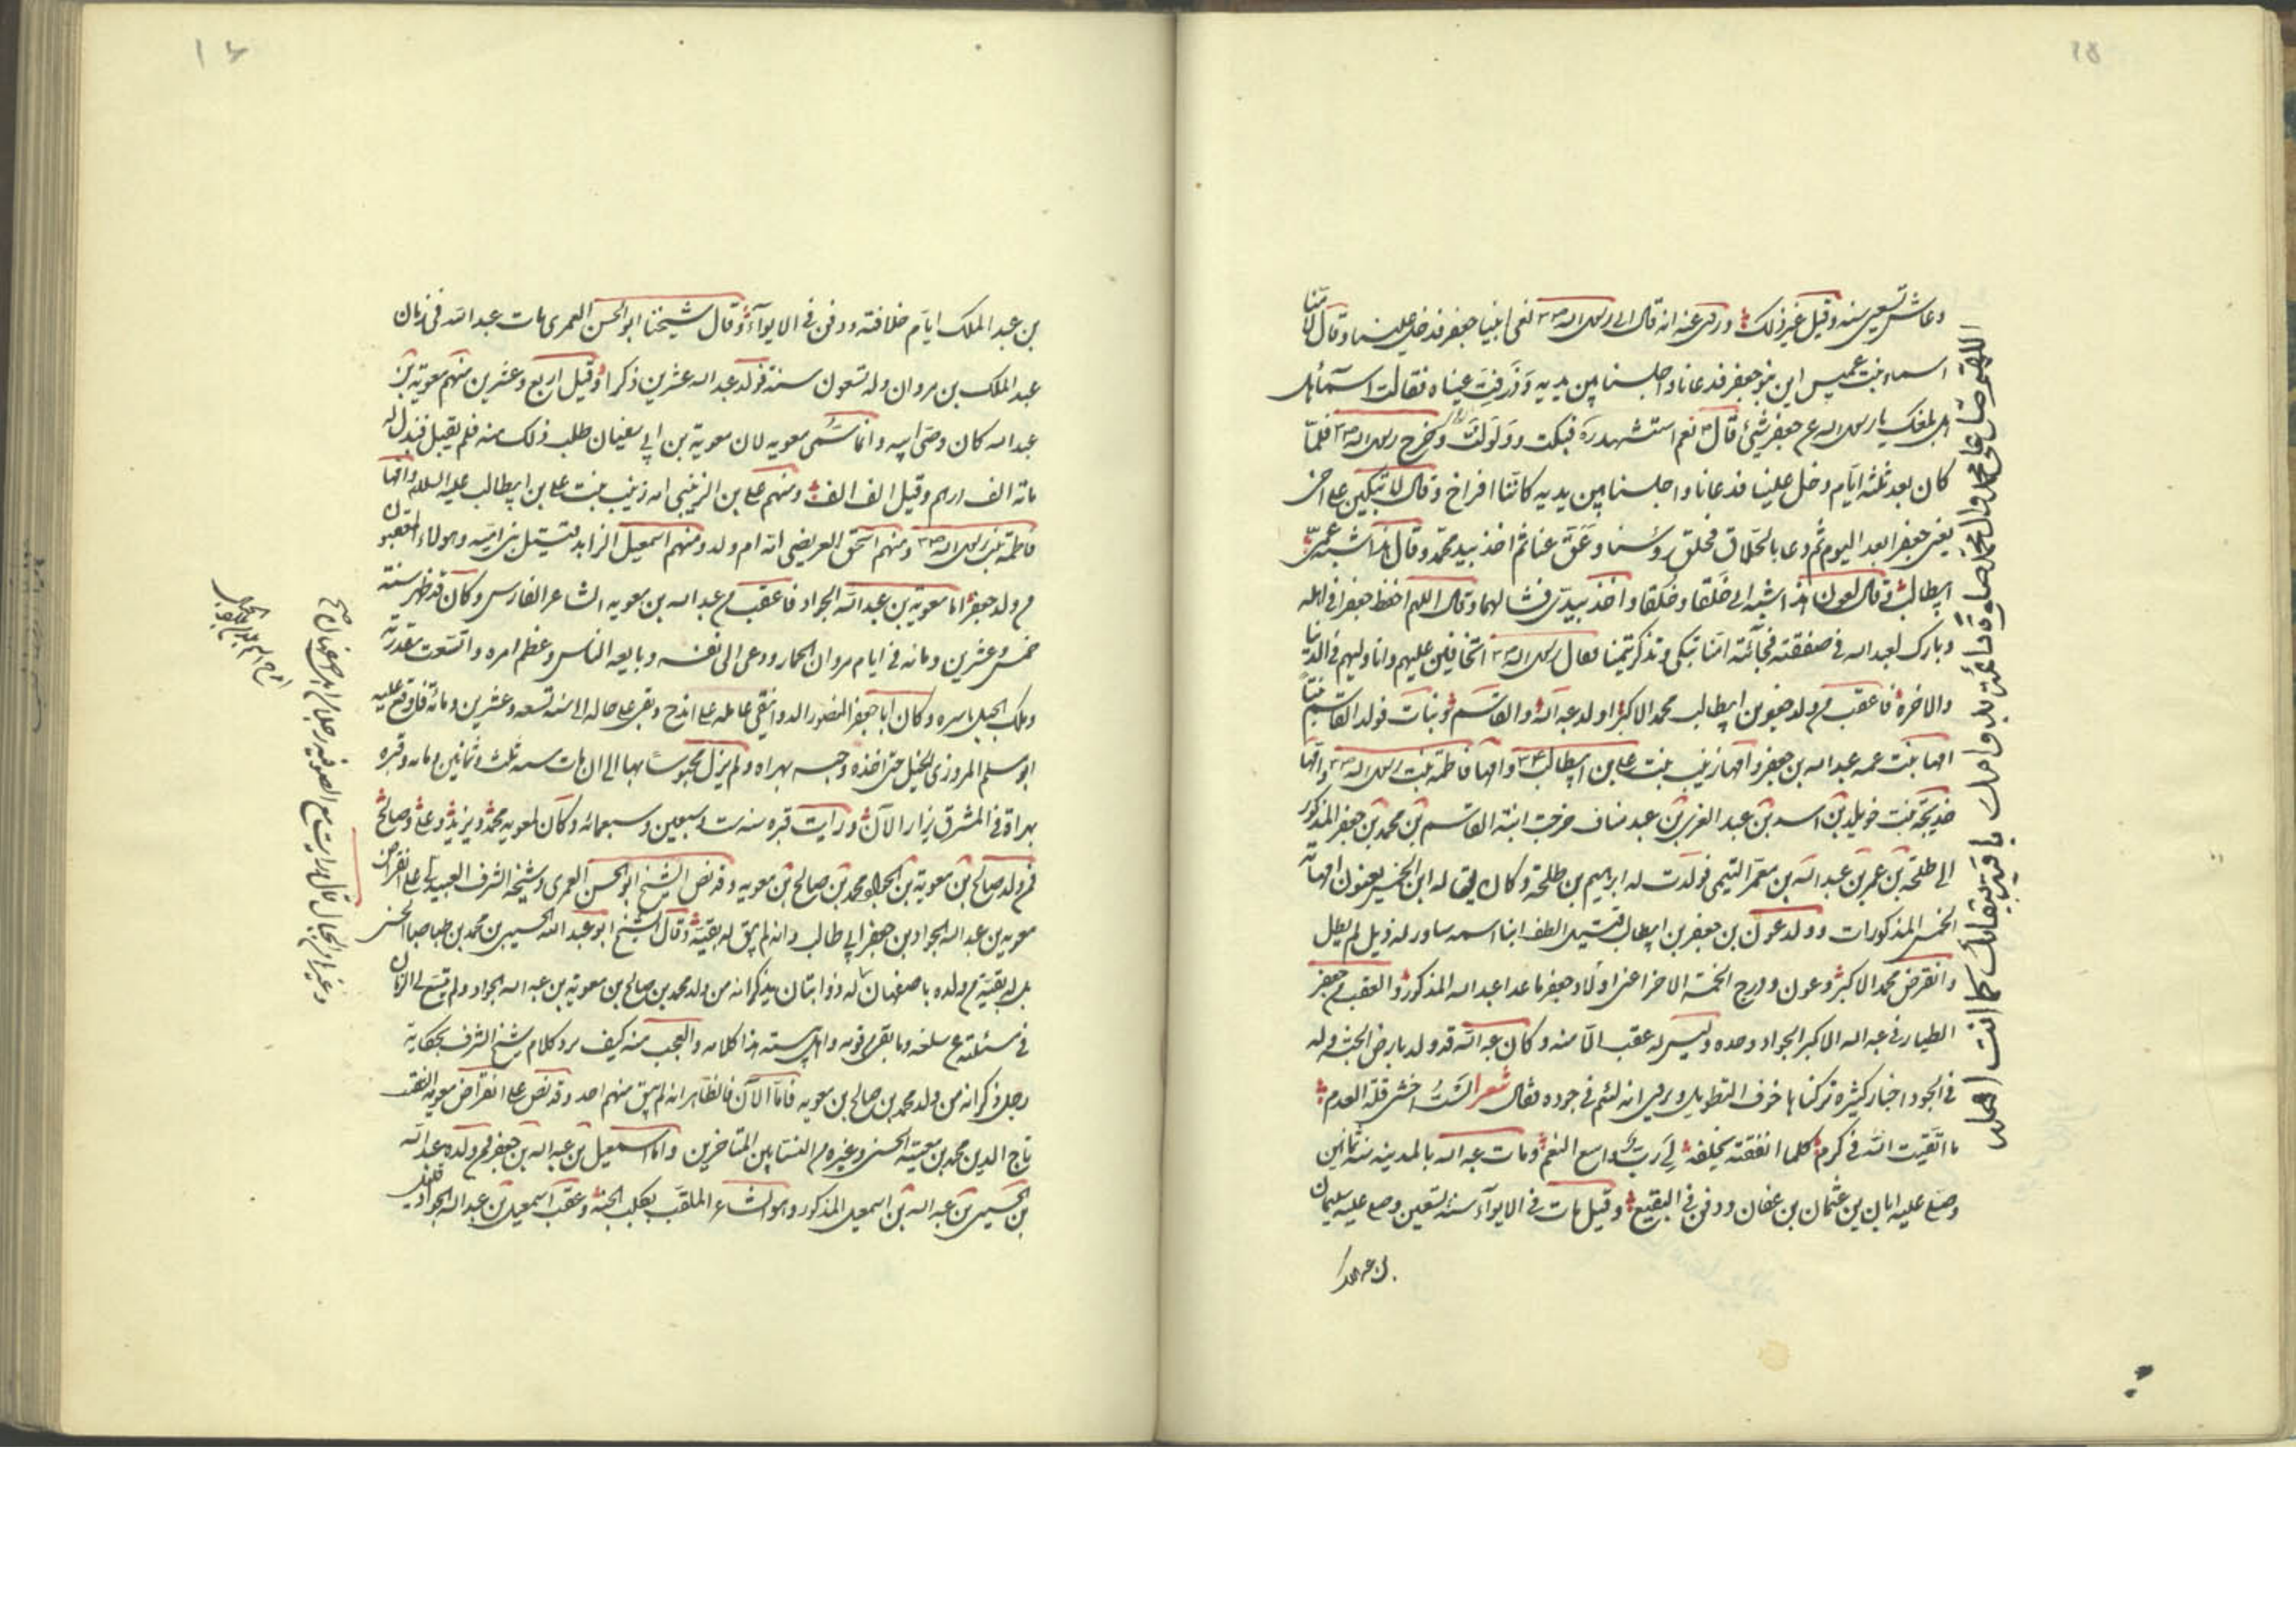 وعاش تسعين سنة وقيل غير ذلك وروى عنه انه قال اتى رسول الله نعى ابينا جعفر فدخل علينا وقال لامنا
اسماء بنت عميس اين بنو جعفر فدعانا واجلسنا بين يديه وذرفت عيناه فقالت اسماء هل
بلغك يا رسول الله عن جعفر شئ قال نعم استشهد ره فبكت وولولت وخرج رسول الله فلما
كان بعد ثلثة ايام دخل علينا فدعانا واجلسنا بين يديه كاننا افراخ وقال لا تبكين على اخى
يعنى جعفرا بعد اليوم ثم دعا بالحلاق فحلق رؤسنا وعق عنا ثم اخذ بيد محمد وقال هذا شبه عمى
ابيطالب وقال لعون هذا شبه ابى خلقا وخلقا واخذ بيدى فشالهما وقال اللهم احفظ جعفرا فى اهله
وبارك لعبد الله فى صفقته فجائته امنا تبكى وتذكر يتمنا فقال رسول الله اتخافين عليهم وانا وليهم فى الدنيا
والاخرة فاعقب من ولد جعفر بن ابيطالب محمد الاكبر اولد عبد الله والقاسم وبنات فولد القاسم بنتا
امها بنت عمه عبد الله بن جعفر وامها زينب بنت على بن ابيطالب وامها فاطمة بنت رسول الله وامها
خديجة بنت خويلد بن اسد بن عبد العزى بن عبد مناف خرجت ابنة القاسم بن محمد بن جعفر المذكور
الى طلحة بن عمر بن عبد الله بن معمر التيمى فولدت له ابراهيم بن طلحة وكان يقال له ابن الخمس يعنون امهاته
الخمس المذكورات وولد عون بن جعفر بن ابيطالب قتيل الطف ابنا اسمه مساور له ذيل لم يطل
وانقرض محمد الاكبر وعون ودرج الخمسة الاخر اعنى اولاد جعفر ما عدا عبد الله المذكور والعقب من جعفر
الطيار فى عبد الله الاكبر الجواد وحده وليس له عقب الا منه وكان عبد الله قد ولد بارض الحبشة وله
فى الجود اخبار كثيرة تركناها خوف التطويل ويروى انه لئم فى جوده فقال شعر الست اخشى قلة العدم
ما اتقيت الله فى كرم كلما انفقته يخلفه لى رب واسع النعم ومات عبد الله بالمدينة سنة ثمانين
وصلى عليه ابان بن عثمان بن عفان ودفن فى البقيع وقيل مات فى الابواء سنة تسعين وصلى عليه سليمان
بن عبد الملك
اللهم صل على محمد وال محمد
بن عبد الملك ايام خلافته ودفن فى الابواء وقال شيخنا ابو الحسن العمرى مات عبد الله فى زمان
عبد الملك بن مروان وله تسعون سنة فولد عبد الله عشرين ذكرا وقيل اربع وعشرين منهم معوية بن
عبد الله كان وصى ابيه وانما سمى معويه لان معوية بن ابى سفيان طلب ذلك منه فلم يقبل فبذل له
مائة الف درهم وقيل الف الف ومنهم على بن الزينبى امه زينب بنت على بن ابيطالب عليه السلام وامها
فاطمة بنت رسول الله ومنهم اسحق العريضى امه ام ولد ومنهم اسمعيل الزاهد قتيل بنى اميه وهولاء المعقبون
من ولد جعفر اما معوية بن عبد الله الجواد فاعقب من عبد الله بن معويه الشاعر الفارس وكان قد ظهر سنة
خمس وعشرين ومائه فى ايام مروان الحمار ودعى الى نفسه وبايعه الناس وعظم امره واتسعت مقدرته
وملك الجبل باسره وكان ابا جعفر المنصور الدوانيقى عامله على ايذج وبقى على حاله الى سنة تسعه وعشرين ومائة فاوقع عليه
ابو مسلم المروزى الحيل حتى اخذه وحبسه بهراه ولم يزل محبوسا بها الى ان مات سنه ثلث وثمانين ومائه وقبره
بهراة فى المشرق يزار الآن ورايت قبره سنة ست وسبعين وسبعمائه وكان لمعويه محمد ويزيد وعلى وصالح
فمن ولد صالح بن معوية بن الجواد محمد بن صالح بن معويه وقد نص الشيخ ابو الحسن العمرى وشيخه الشرف العبيدلى على انقراض
معويه بن عبد الله الجواد بن جعفر ابى طالب وانه لم يبق له بقية وقال الشيخ ابو عبد الله الحسين بن محمد بن طباطبا الحسنى
بل له بقية من ولده باصفهان له ذوابتان يذكر انه من ولد محمد بن صالح بن معوية بن عبد الله الجواد ولم يتسع لى الزمان
فى مسئلته عن سلفه وما بقى من قومه واهل بيته هذا كلامه والعجب منه كيف يرد كلام شيخ الشرف بحكاية
رجل ذكر انه من ولد محمد بن صالح بن معويه فاما الآن فالظاهر انه لم يبق منهم احد وقد نص على انقراض معويه النقيب
تاج الدين محمد بن معية الحسنى وغيره من النسابين المتاخرين واما اسمعيل بن عبد الله بن جعفر فمن ولده عبد الله
بن الحسين بن عبد الله بن اسمعيل المذكور وهو الشاعر الملقب بكلب الجنة وعقب اسمعيل بن عبد الله الجواد قليل